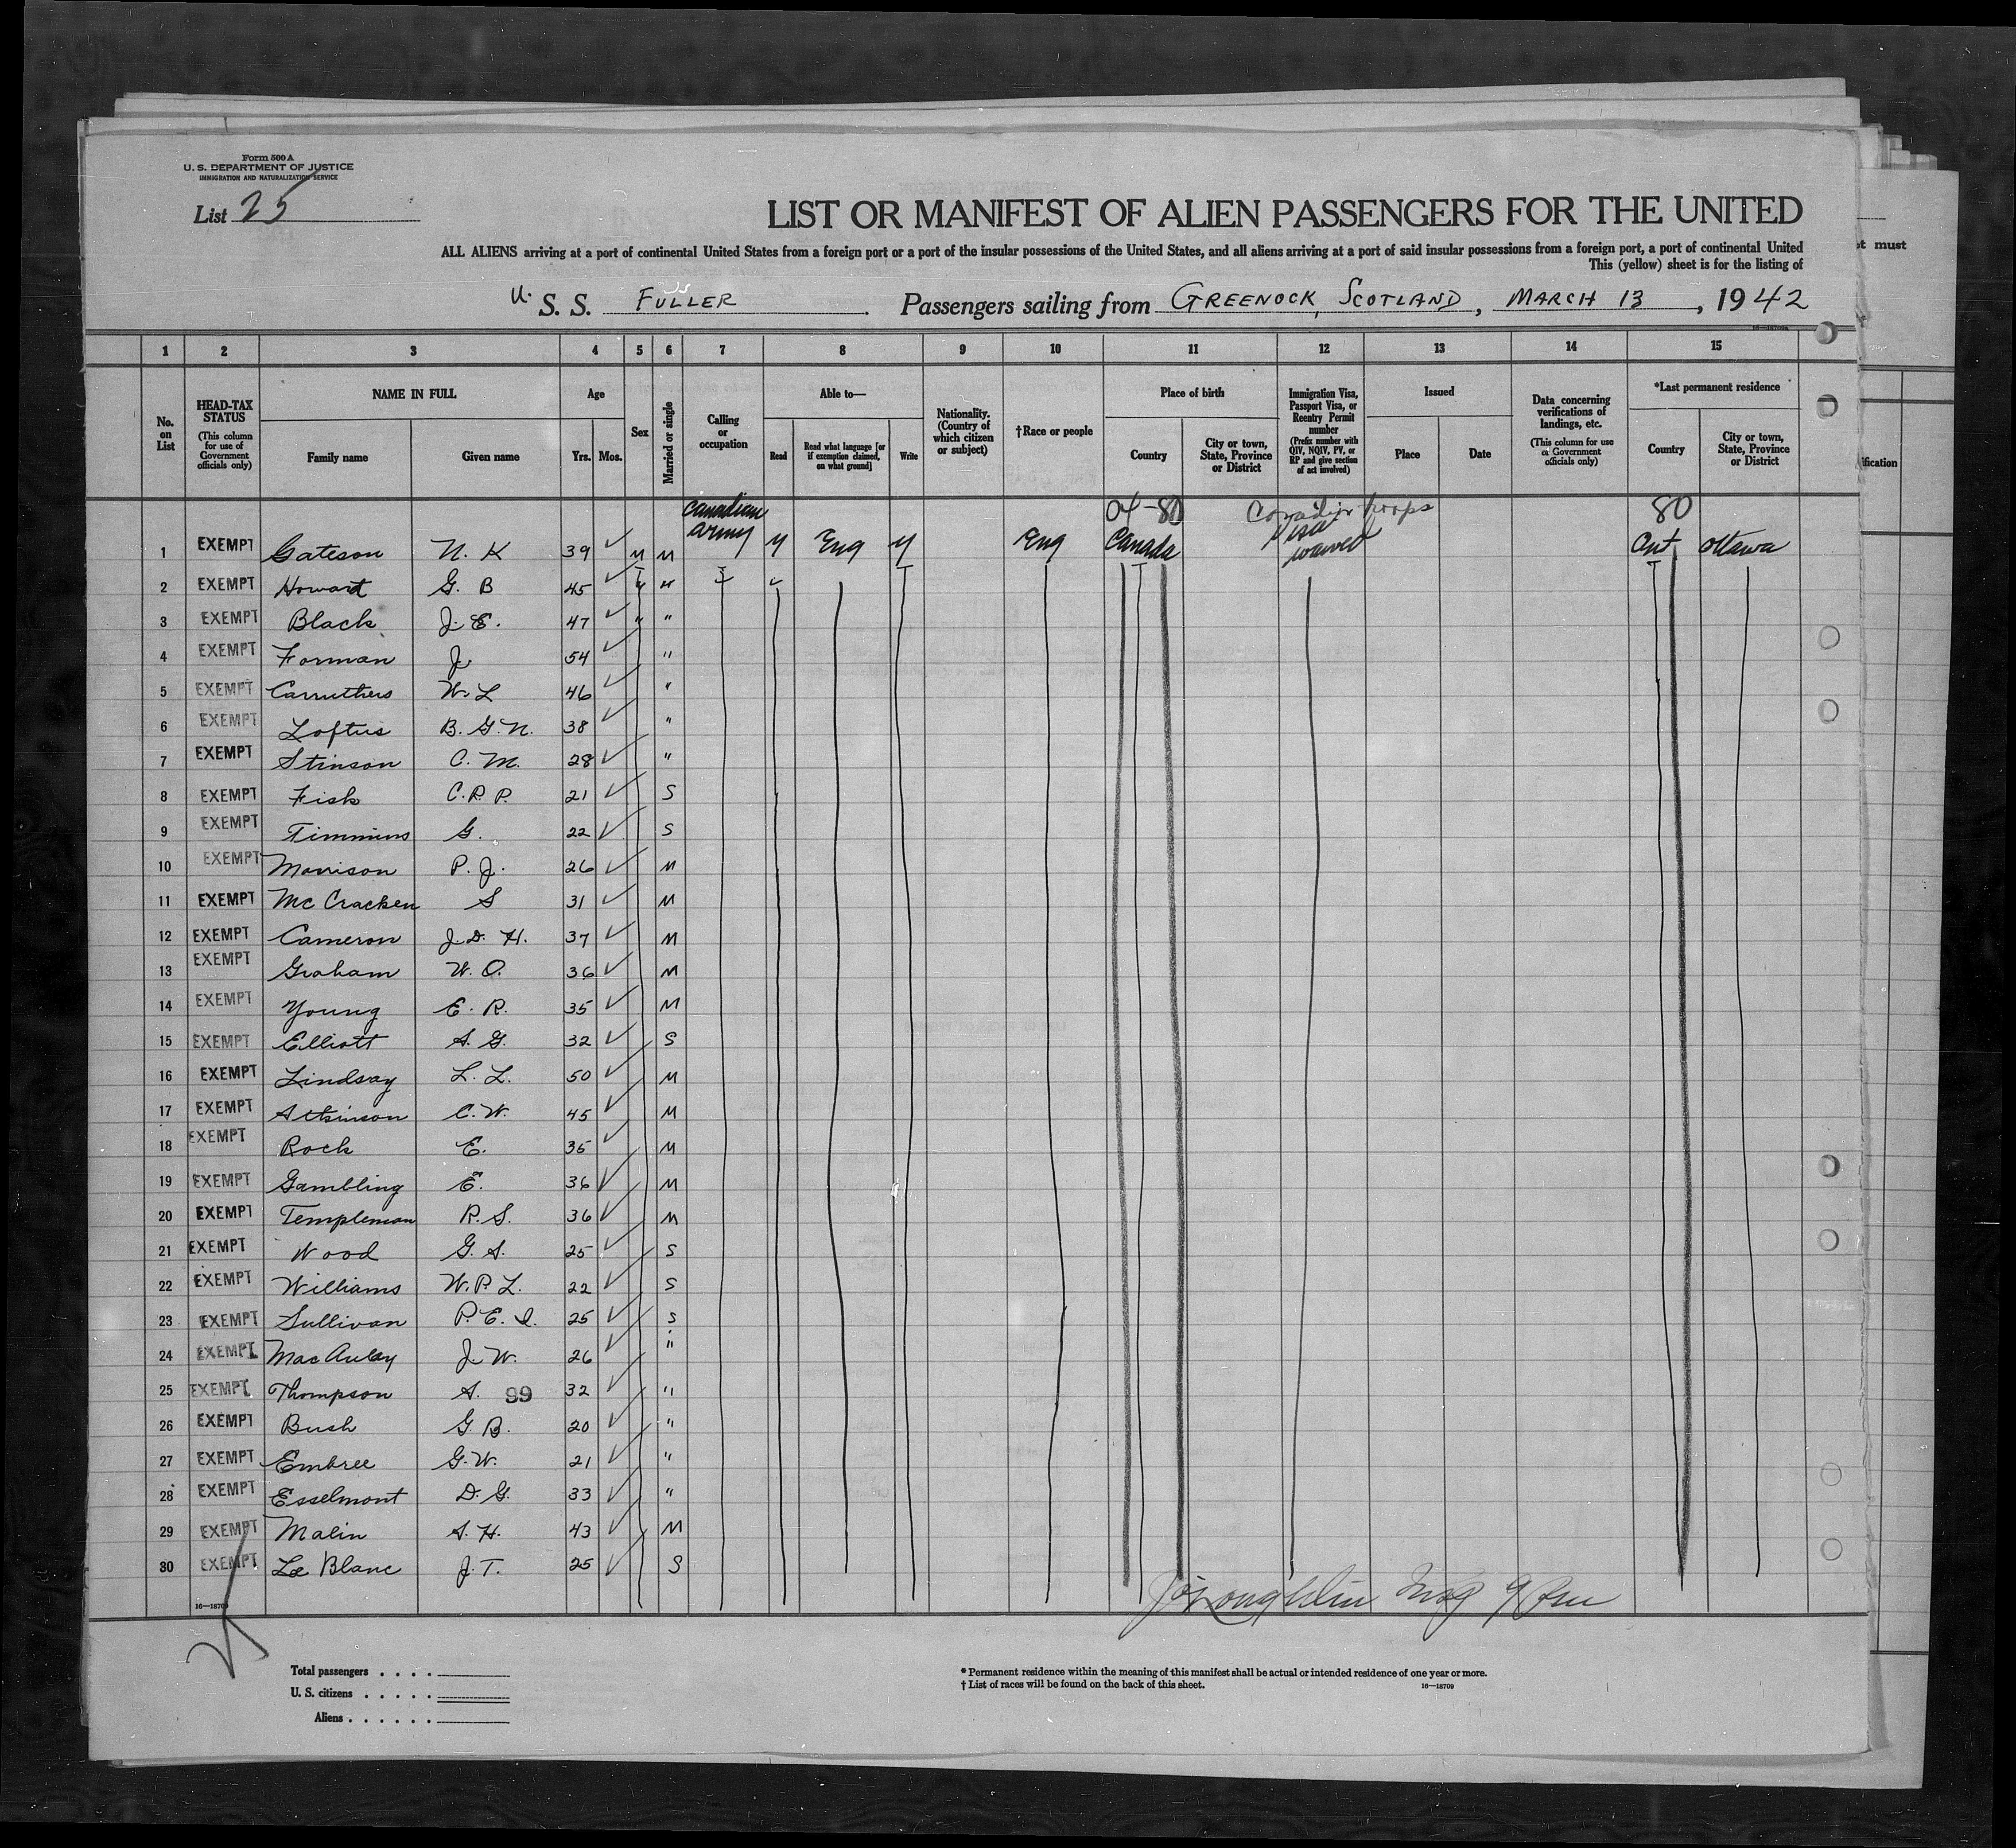 Form 500 A
U. S. DEPARTMENT OF JUSTICE
IMMIGRATION AND NATURALIZATION SERVICE
List 25
LIST OR MANIFEST OF ALIEN PASSENGERS FOR THE UNITED
ALL ALIENS arriving at a port of continental United States from a foreign port or a port of the insular possessions of the United States, and all aliens arriving at a port of said insular possessions from a foreign port, a port of continental United
This (yellow) sheet is for the listing of
U. S. S. FULLER Passengers sailing from GREENOCK, SCOTLAND, MARCH 13, 1942
1 2 3 4 5 6 7 8 9 10 11 12 13 14 15
No. on List
HEAD-TAX STATUS (This column for use of Government officials only)
NAME IN FULL
Family name Given name
Age
Yrs. Mos.
Sex
Married or single
Calling or occupation
Able to—
Read
Read what language [or if exemption claimed, on what ground]
Write
Nationality. (Country of which citizen or subject)
†Race or people
Place of birth
Country
City or town, State, Province or District
Immigration Visa, Passport Visa, or Reentry Permit number (Prefix number with QIV, NQIV, PV, or RP and give section of act involved)
Issued
Place Date
Data concerning verifications of landings, etc. (This column for use of Government officials only)
*Last permanent residence
Country
City or town, State, Province or District
80
1 EXEMPT Gateson N. K 39 M M Canadian Army y Eng y Eng Canada Visa waived Ont. Ottawa
2 EXEMPT Howard G. B 45 " "
3 EXEMPT Black J. E. 47 " "
4 EXEMPT Forman J. 54 "
5 EXEMPT Carruthers W. L 46 "
6 EXEMPT Loftus B. G. N. 38 "
7 EXEMPT Stinson C. M. 28 "
8 EXEMPT Fisk C. R. P. 21 S
9 EXEMPT Timmins G. 22 S
10 EXEMPT Morrison P. J. 26 M
11 EXEMPT McCracken S 31 M
12 EXEMPT Cameron J. D. H. 37 M
13 EXEMPT Graham W. O. 36 M
14 EXEMPT Young E. R. 35 M
15 EXEMPT Elliott A. G. 32 S
16 EXEMPT Lindsay L. L. 50 M
17 EXEMPT Atkinson C. W. 45 M
18 EXEMPT Rock E. 35 M
19 EXEMPT Gambling E. 36 M
20 EXEMPT Templeman R. S. 36 M
21 EXEMPT Wood G. A. 25 S
22 EXEMPT Williams W. P. L. 22 S
23 EXEMPT Sullivan P. E. I. 25 S
24 EXEMPT MacAulay J. W. 26 "
25 EXEMPT Thompson A. 99 32 "
26 EXEMPT Bush G. B. 20 "
27 EXEMPT Embree G. W. 21 "
28 EXEMPT Esselmont D. G. 33 "
29 EXEMPT Malin A. H. 43 M
30 EXEMPT Le Blanc J. T. 25 S
16—18709
Total passengers . . . .
U. S. citizens . . . . .
Aliens . . . . . .
* Permanent residence within the meaning of this manifest shall be actual or intended residence of one year or more.
† List of races will be found on the back of this sheet.
16—18709